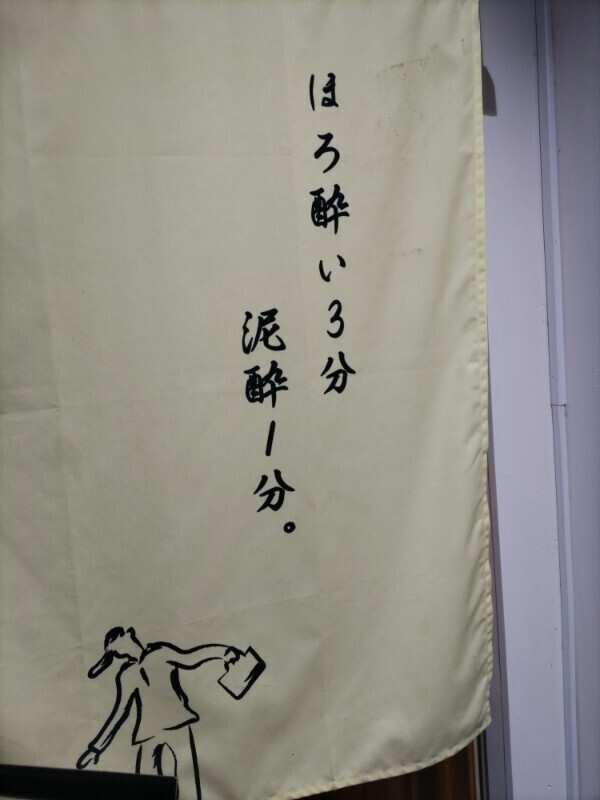 ほろ酔い3分
泥酔1分。